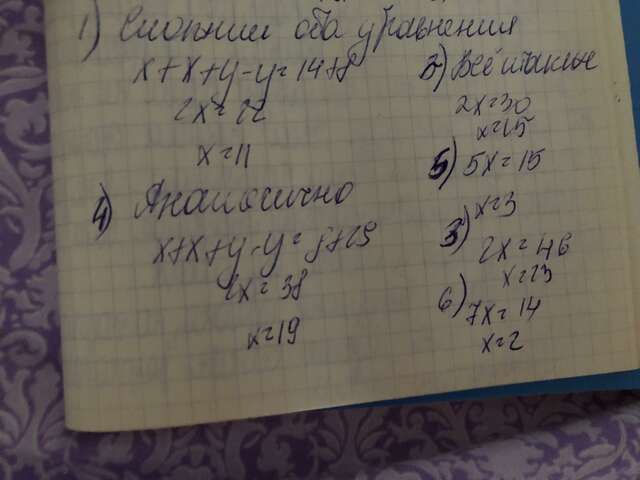 1) Сложим оба уравнения
x+x+y-y=14+8
2x=22
x=11
4) Аналогично
x+x+y-y=9+29
2x=38
x=19
2) Всё так же
2x=30
x=15
5) 5x=15
x=3
3)
2x=46
x=23
6) 7x=14
x=2